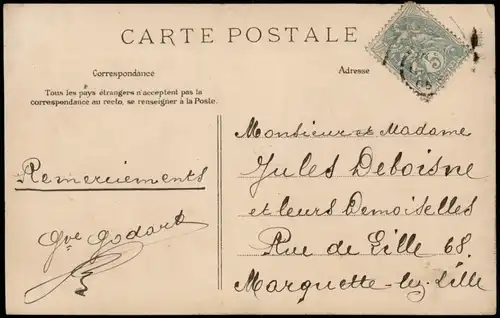 CARTE POSTALE
Correspondance
Tous les pays étrangers n'acceptent pas la
correspondance au recto, se renseigner à la Poste.
Remerciements
Gve Godart
Adresse
5
Monsieur et Madame
Jules Deboisne
et leurs Demoiselles
Rue de Lille 68.
Marquette-lez-Lille